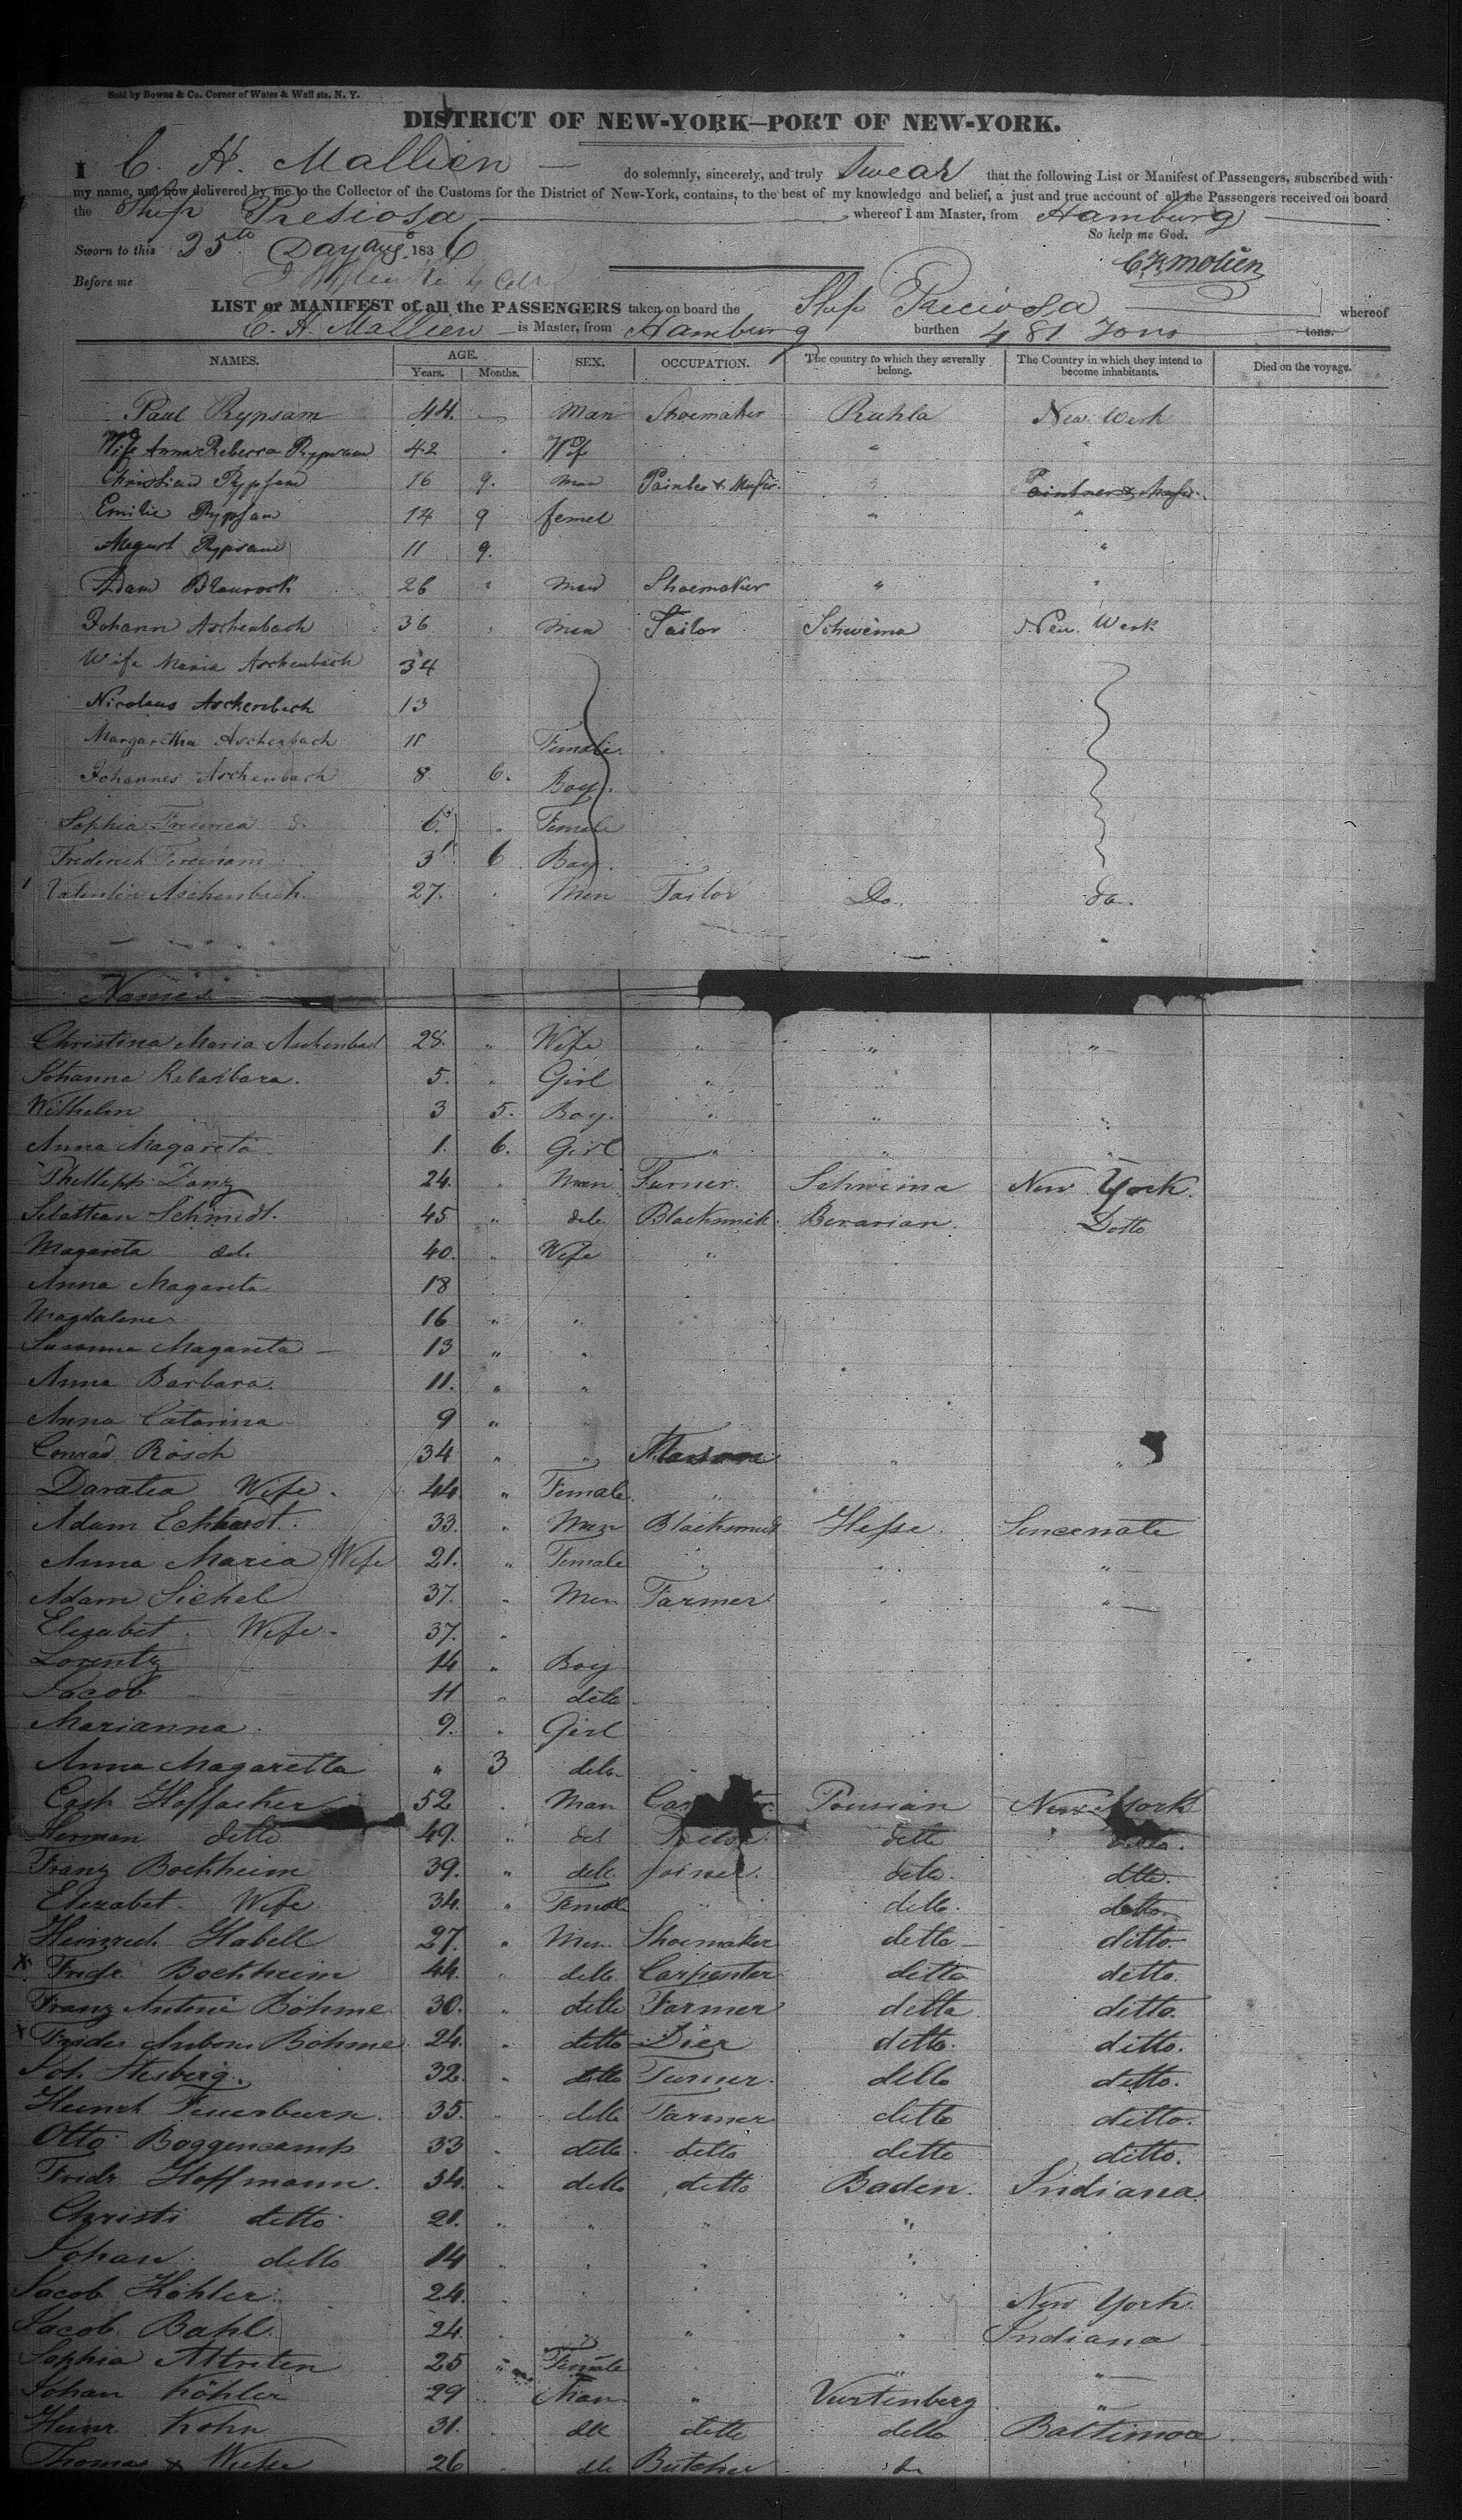 Sold by Bowne & Co. Corner of Water & Wall sts. N. Y.
DISTRICT OF NEW-YORK—PORT OF NEW-YORK.
I C. H. Mallien do solemnly, sincerely, and truly Swear that the following List or Manifest of Passengers, subscribed with
my name, and now delivered by me to the Collector of the Customs for the District of New-York, contains, to the best of my knowledge and belief, a just and true account of all the Passengers received on board
the Ship Presiosa whereof I am Master, from Hamburg
So help me God.
Sworn to this 25th Day Aug. 1836
C H Molien
Before me
LIST or MANIFEST of all the PASSENGERS taken on board the Ship Preciosa whereof
C. H. Mallien is Master, from Hamburg burthen 481 Tons tons.
NAMES. AGE. SEX. OCCUPATION. The country to which they severally belong. The Country in which they intend to become inhabitants. Died on the voyage.
Years. Months.
Paul Rypsam 44. Man Shoemaker Ruhla New Werk
Wife Anna Rebecca Rypsam 42 Wif "
Christian Rypsam 16 9. man Painter & Musir. "
Emilie Rypsam 14 9 femel " "
August Rypsam 11 9. "
Adam Blaurock 26 " Man Shoemaker " "
Johann Aschenbach 36 Man Tailor Schweina New Werk
Wife Maria Aschenbach 34
Nicolaus Aschenbach 13
Margaretha Aschenbach 11 Female.
Johannes Aschenbach 8 6. Boy.
Sophia 6 Female
Frederich 3 6 Boy.
Valentin Aschenbach. 27. Men Tailor Do. do.
Names
Christina Maria Aschenbach 28. " Wife " " "
Johanna 5. " Girl "
Wilhelm 3 5. Boy. " "
Anna Magareta 1. 6. Girl " "
Phillipp Danz 24. Man Turner. Schweina New York.
Schmidt. 45 " dito Blacksmith Bavarian. Ditto
Magareta do 40. " Wife "
Anna Magareta 18
Magdalena 16 " "
Susanna Magareta 13 " "
Anna Barbara. 11. " "
Anna Catarina 9 "
Conrad Rösch 34 " " " "
Daratea Wife. 44. " Female. "
Adam Echhardt. 33. " Man Blacksmidt Hesse. Sincenate
Anna Maria Wife 21. " Female " " "
Adam Sichel 37. " Men Farmer " "
Elisabet. Wife. 37. "
Lorentz 14 " Boy
Jacob 11 " ditto
Marianna. 9. " Girl
Anna Magaretta " 3 ditto
Hoffacker 52 Man New York
Herman ditto 49. " ditto ditto ditto.
Franz Bockheim 39. " ditto Joiner. ditto. ditto.
Elezabet. Wife 34. " Female " ditto. ditto.
Heinrich Habell 27. " Men Shoemaker ditto ditto
x Fridr Bockheim 44. " ditto Carpenter ditto ditto.
Franz Antoni Böhme. 30. " ditto Farmer ditto ditto.
x Frider Antoni Böhme. 24. " ditto Dier ditto. ditto.
Joh. Stesberg. 32. " ditto Turner. ditto ditto.
Heinrh Feuerburn. 35. " ditto Farmer ditto ditto.
Otto Boggencamp 33 " ditto ditto ditto ditto.
Fridr Hoffmann. 34. " ditto ditto Baden. Indiana
Christi ditto 21. " " " "
Johan ditto 14 " " " "
Jacob Köhler. 24. " " " New York.
Jacob Bahl. 24. " " " Indiana
Sophia 25 " Female " "
Johan Köhler 29 Man " Vurtenberg "
Heinr Kohn 31. ditto ditto ditto Baltimore
Thomas 26 ditto Butcher do